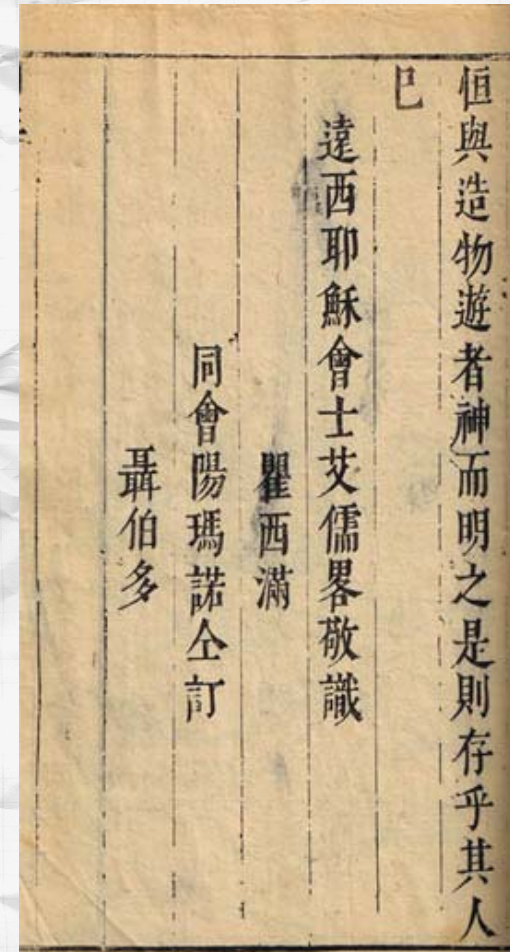 恒與造物遊者神而明之是則存乎其人
巳
遠西耶穌會士艾儒畧敬識
瞿西滿
同會陽瑪諾仝訂
聶伯多